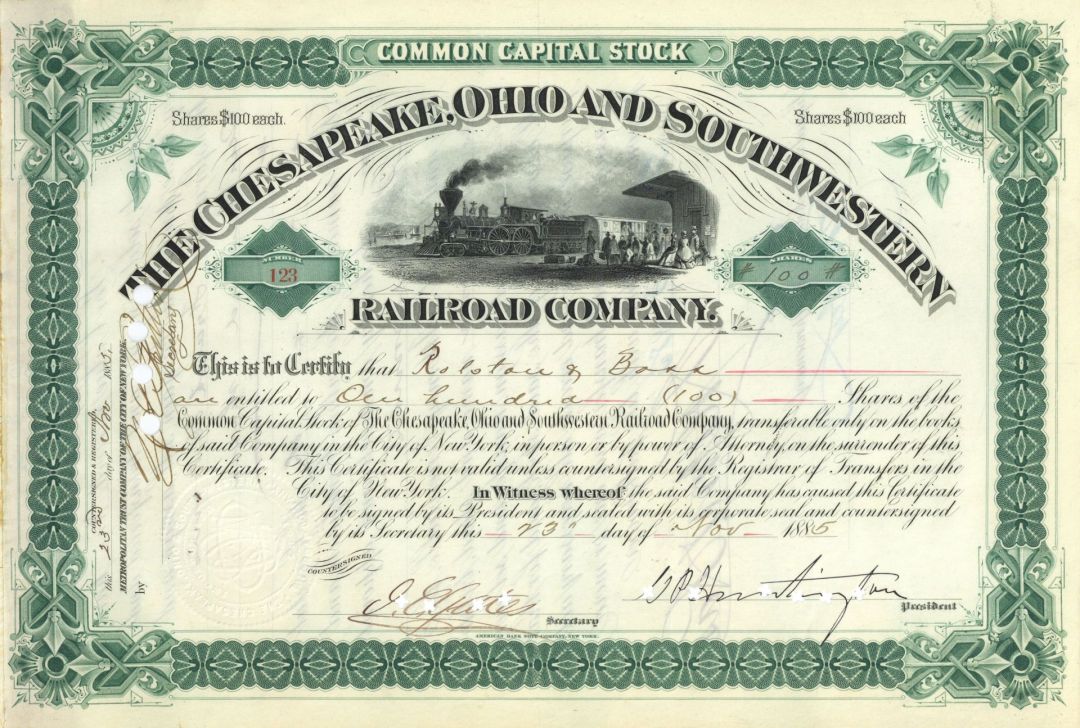 COMMON CAPITAL STOCK
Shares $100 each.
Shares $100 each
THE CHESAPEAKE, OHIO AND SOUTHWESTERN
RAILROAD COMPANY.
NUMBER
123
SHARES
# 100 #
This is to Certify that Rolston & Bass
are entitled to One hundred (100) Shares of the
Common Capital Stock of The Chesapeake, Ohio and Southwestern Railroad Company, transferable only on the books
of said Company in the City of New York, in person or by power of Attorney, on the surrender of this
Certificate. This Certificate is not valid unless countersigned by the Registrar of Transfers in the
City of New York. In Witness whereof the said Company has caused this Certificate
to be signed by its President and sealed with its corporate seal and countersigned
by its Secretary this 23 day of Nov 1885
COUNTERSIGNED
Secretary
C P Huntington President
AMERICAN BANK NOTE COMPANY, NEW YORK.
COUNTERSIGNED & REGISTERED,
this 23rd day of Nov 1885.
METROPOLITAN TRUST COMPANY OF THE CITY OF NEW YORK.
by
Secretary